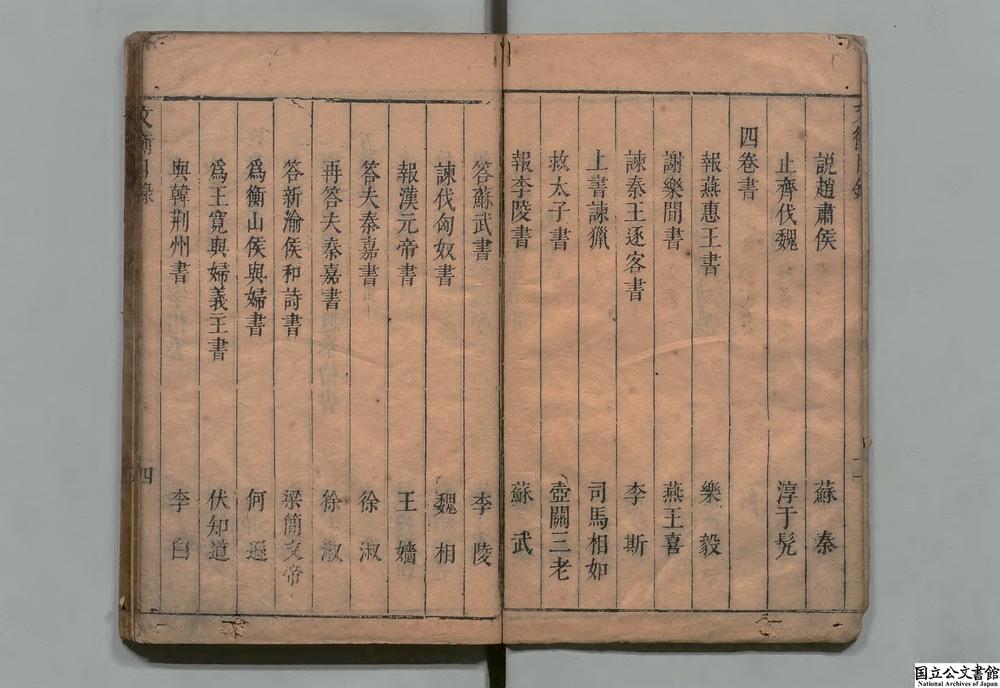 説趙肅侯 蘇秦
止齊伐魏 淳于髠
四卷書
報燕惠王書 樂毅
謝樂間書 燕王喜
諫秦王逐客書 李斯
上書諫獵 司馬相如
救太子書 壺關三老
報李陵書 蘇武
答蘇武書 李陵
諫伐匈奴書 魏相
報漢元帝書 王嬙
答夫秦嘉書 徐淑
再答夫秦嘉書 徐淑
答新渝侯和詩書 梁簡文帝
爲衡山侯與婦書 何遜
爲王寬與婦義王書 伏知道
與韓荆州書 李白
目錄
四
国立公文書館
National Archives of Japan